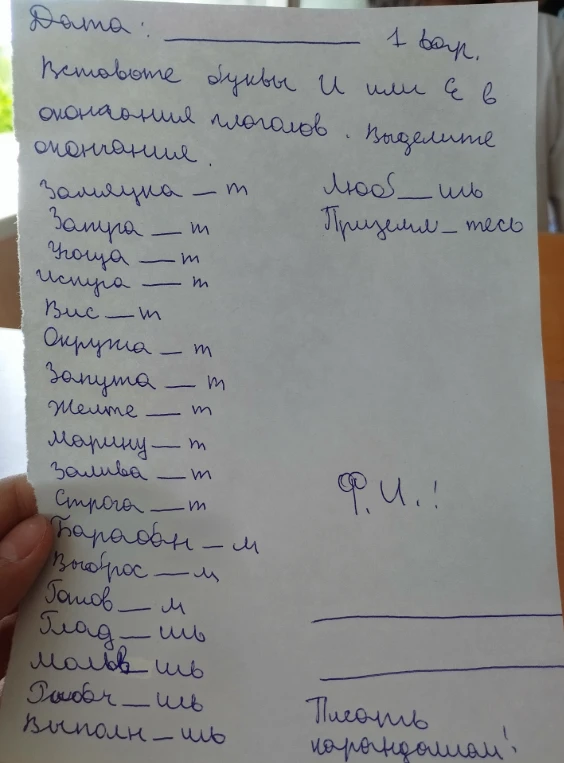 Дата: __________ 1 вар.
Вставьте буквы И или Е в
окончания глаголов. Выделите
окончания.
Замяука __ т
Запуга __ т
Угоща __ т
Испуга __ т
Вис __ т
Окружа __ т
Запута __ т
Желте __ т
Марину __ т
Залива __ т
Строга __ т
Барабан __ м
Выброс __ м
Готов __ м
Глад __ шь
Мольв __ шь
Выполн __ шь
Люб __ шь
Приземл _ тесь
Ф.И.:
Писать
карандашом!